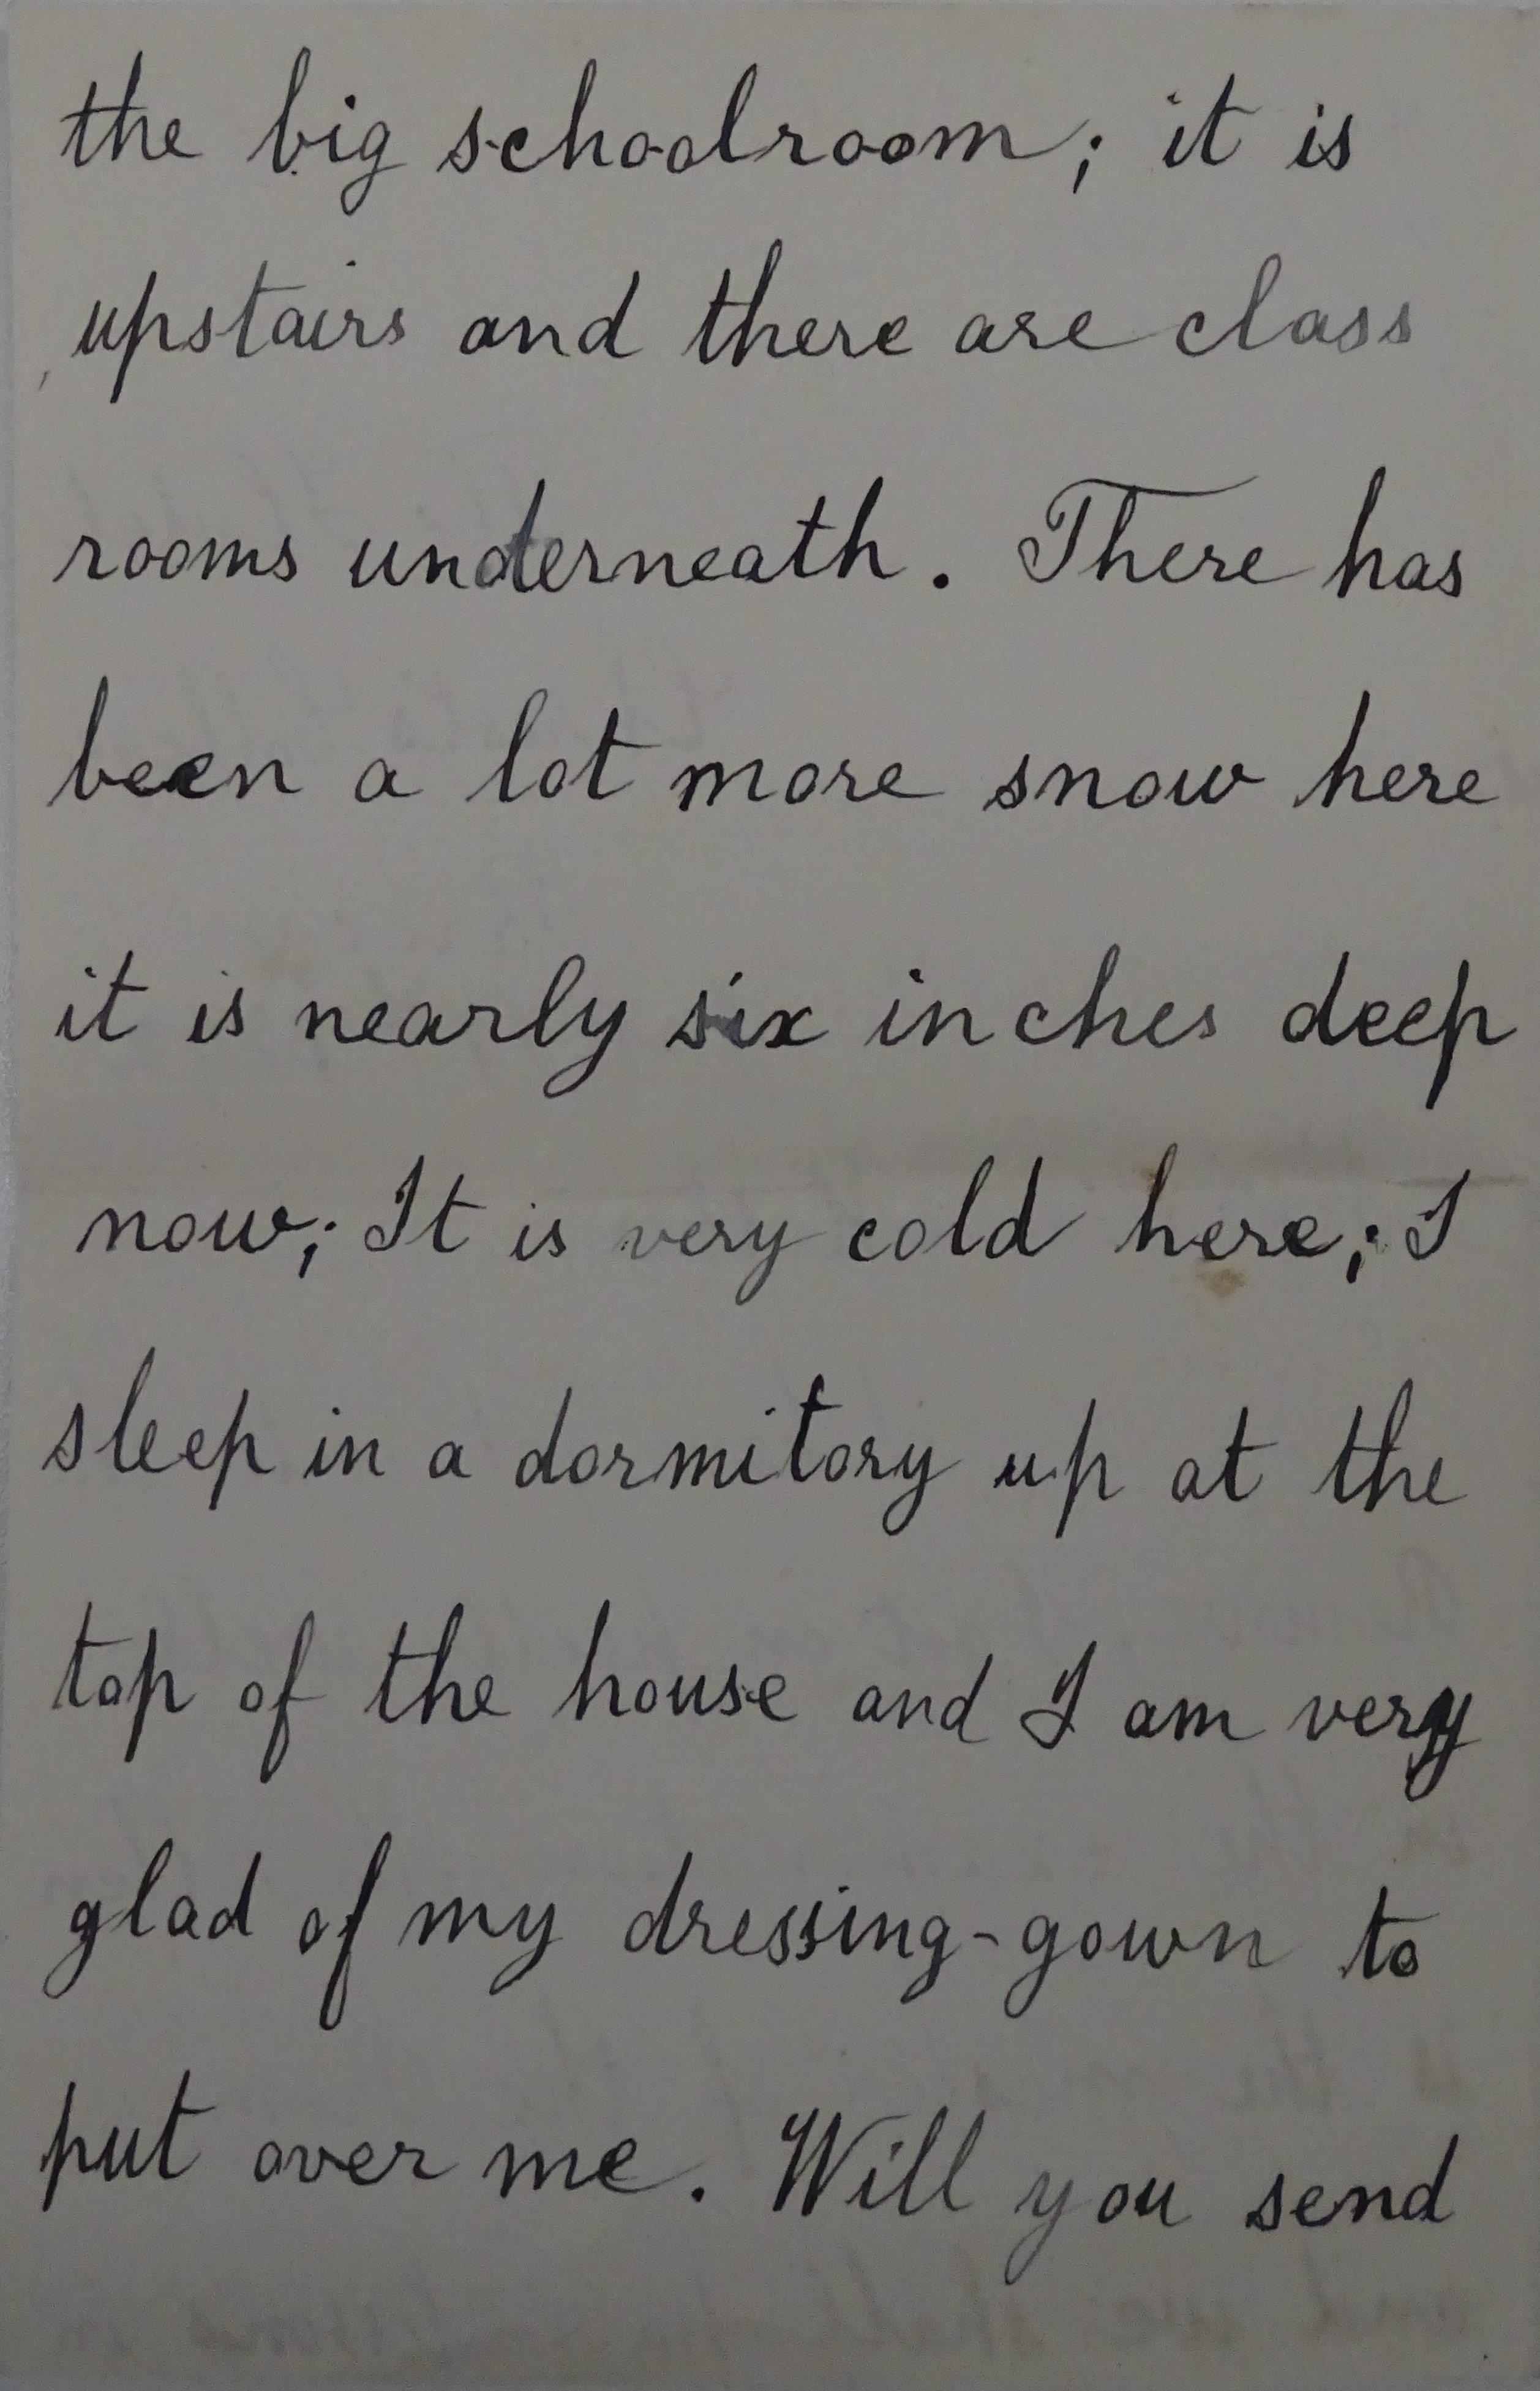 the big schoolroom; it is
upstairs and there are class
rooms underneath. There has
been a lot more snow here
it is nearly six inches deep
now; It is very cold here; I
sleep in a dormitory up at the
top of the house and I am very
glad of my dressing-gown to
put over me. Will you send